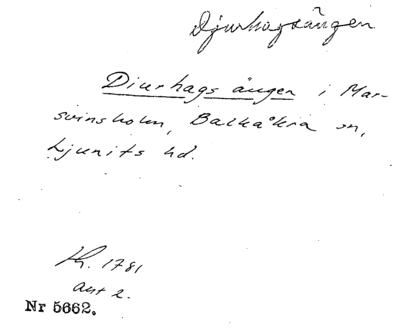 Djurhagsängen
Diurhags ängen i Mar-
svinsholm, Balkåkra sn,
Ljunits hd.
Kh. 1781
akt 2.
Nr 5662.